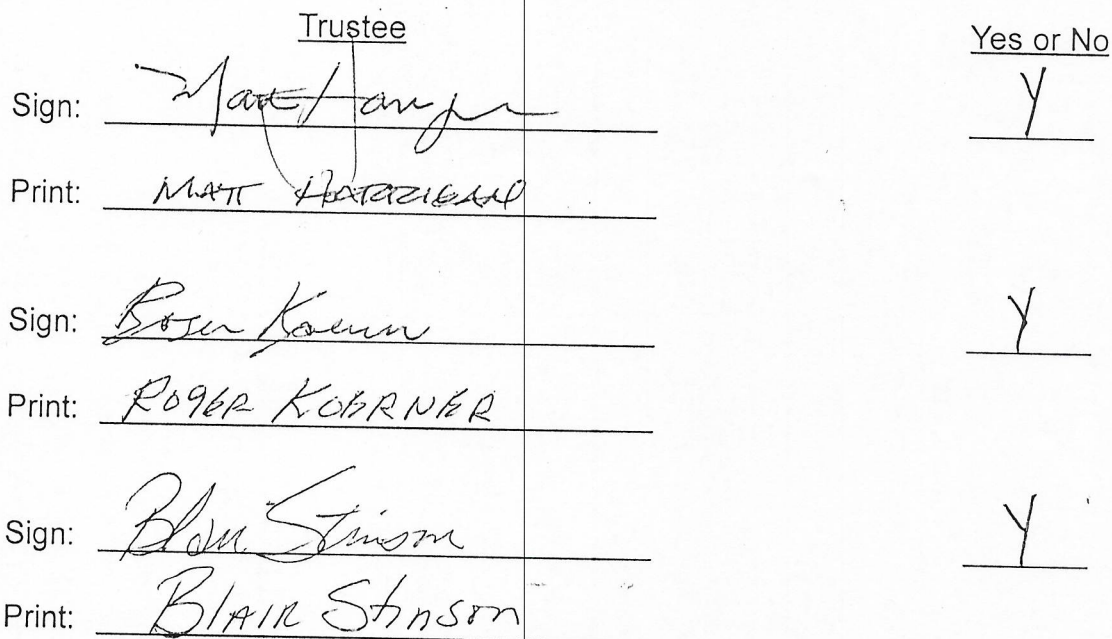 Trustee Yes or No
Sign: Matt Y
Print: MATT
Sign: Roger Koerner Y
Print: ROGER KOERNER
Sign: Blair Stinson Y
Print: BLAIR Stinson